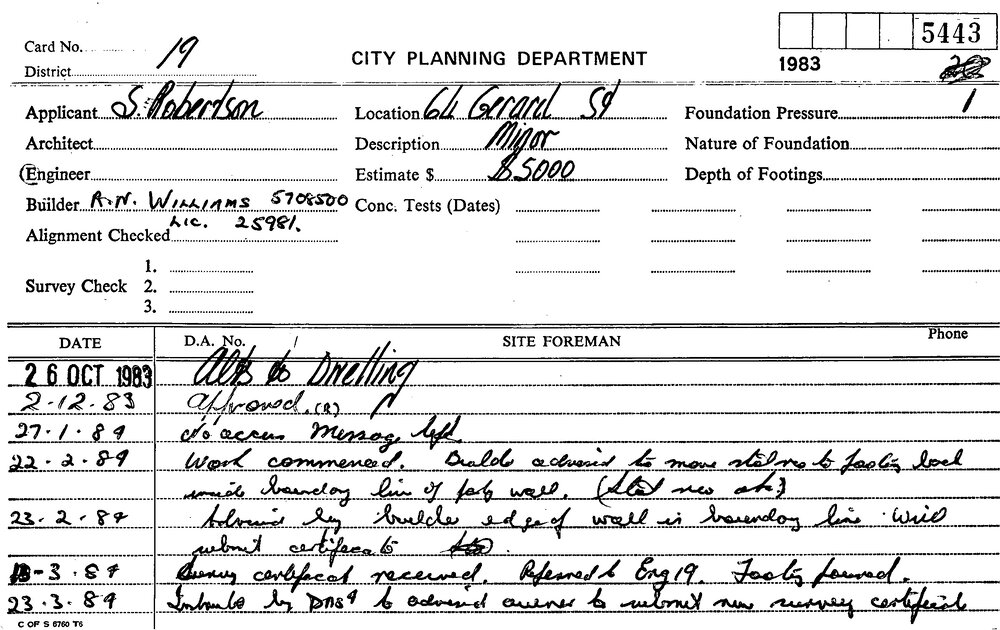 5443
Card No. 19
CITY PLANNING DEPARTMENT
1983
District
Applicant S. Robertson Location 64 Gerard St Foundation Pressure 1
Architect Description Minor Nature of Foundation
Engineer Estimate $ $5000 Depth of Footings
Builder R.N. WILLIAMS 5708500 Conc. Tests (Dates)
Lic. 25981.
Alignment Checked
1.
Survey Check 2.
3.
DATE D.A. No. SITE FOREMAN Phone
26 OCT 1983 Alts to Dwelling
2.12.83 Approved. (R)
27.1.84 No access Message left
22.2.84 Work commenced. Builder advised to move to footing back
inside boundary line of party wall.
23.2.84 Advised by builder edge of wall is boundary line Will
submit certificate
-3.84 Survey certificate received. Referred to Eng 19. Footing poured.
23.3.84 by to advised owner to submit new survey certificate
C OF S 6760 T6